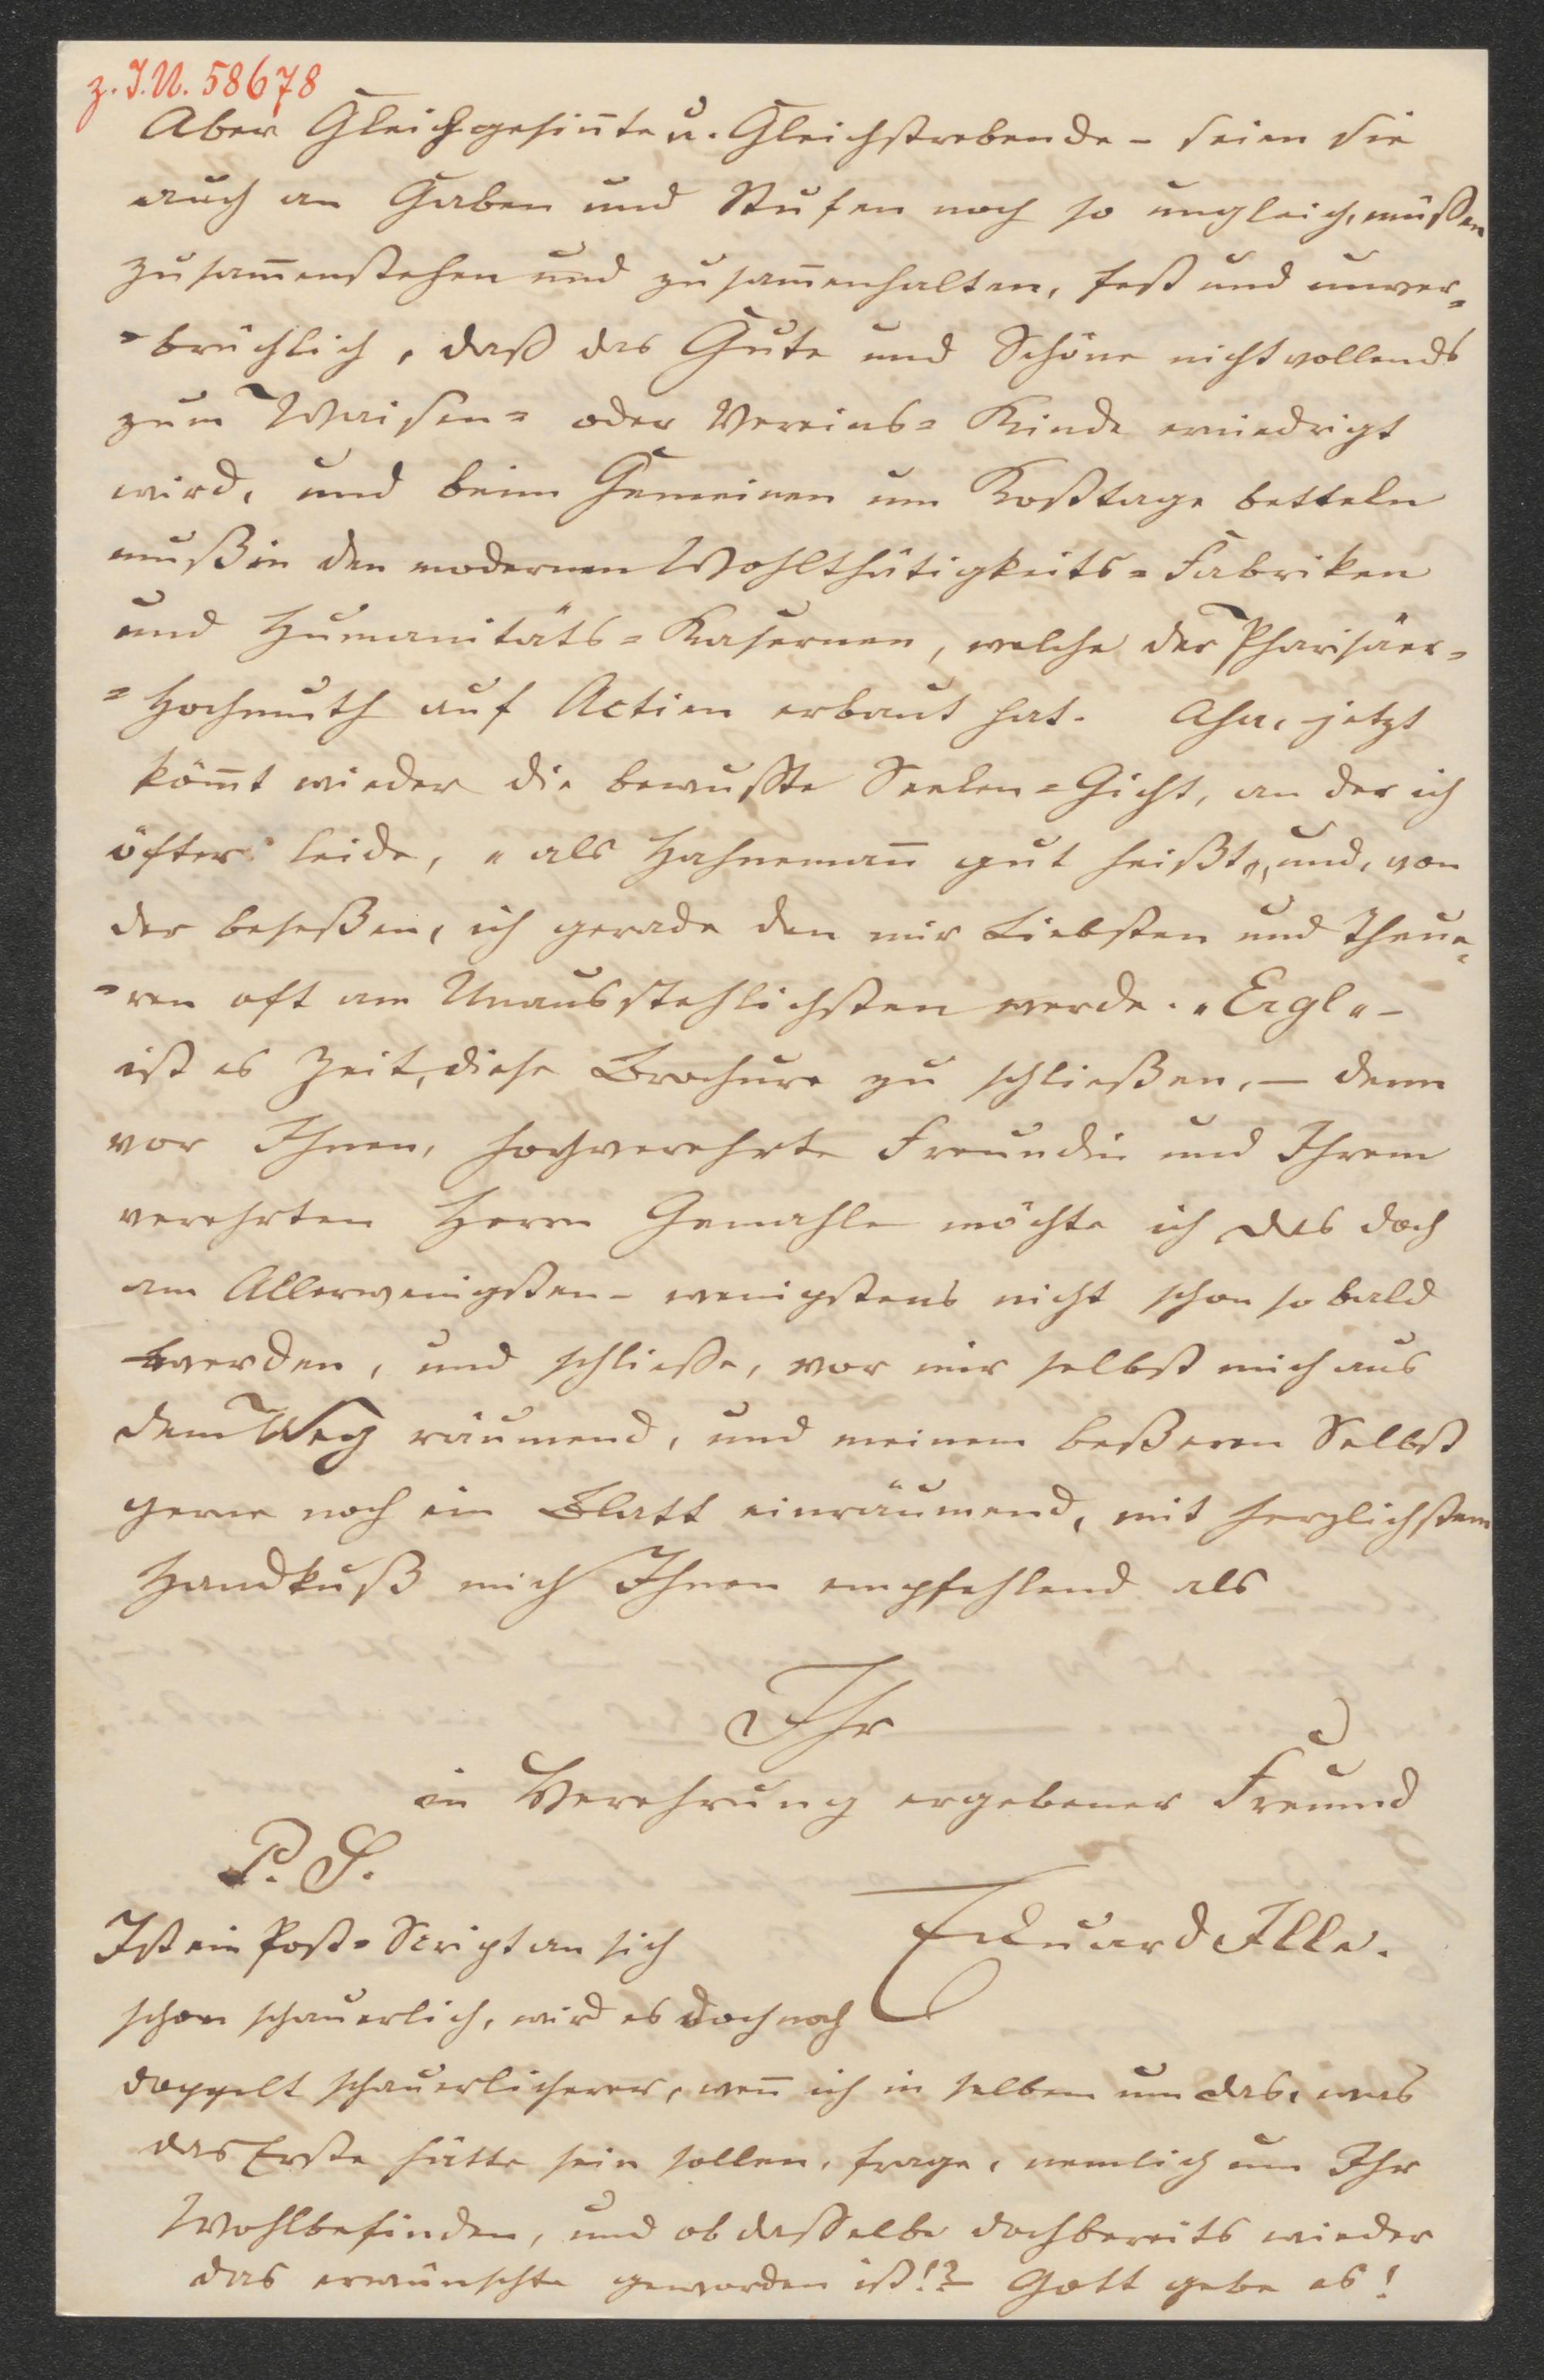 z. I.N. 58678
Aber Gleichgesin̄te u. Gleichstrebende – seien sie
auch an Gaben und Stufen noch so ungleich, müßen
zusam̄enstehen und zusam̄enhalten, fest und unver=
=brüchlich, daß das Gute und Schöne nicht vollends
zum Waisen= oder Vereins=Kinde erniedrigt
wird, und beim Gemeinen um Kosttage betteln
muß in den modernen Wohlthätigkeits=Fabriken
und Humanitäts=Kasernen, welche der Pharisäer=
=Hochmuth auf Actien erbaut hat. Aha, jetzt
köm̄t wieder die bewußte Seelen=Gicht, an der ich
öfter leide, „als Hahneman̄ gut heißt„, und, von
der beseßen, ich gerade den mir Liebsten und Theue=
=ren oft am Unausstehlichsten werde. „Ergl„ –
ist es Zeit, diese Brochure zu schließen, – denn
vor Ihnen, hochverehrte Freundin und Ihrem
verehrten Herrn Gemahle möchte ich das doch
am Allerwenigsten – wenigstens nicht schon so bald
werden, und schließe, vor mir selbst mich aus
dem Weg räumend, und meinem beßeren Selbst
gerne noch ein Blatt einräumend, mit herzlichstem
Handkuß mich Ihnen empfehlend als
Ihr
in Verehrung ergebener Freund
P. S.
Eduard Ille.
Ist ein Post=Script an sich
schon schauerlich, wird es doch noch
doppelt schauerlicherer, wen̄ ich in selbem um das, was
das Erste hätte sein sollen, frage, nemlich um Ihr
Wohlbefinden, und ob dasselbe doch bereits wieder
das erwünschte geworden ist!? – Gott gebe es!